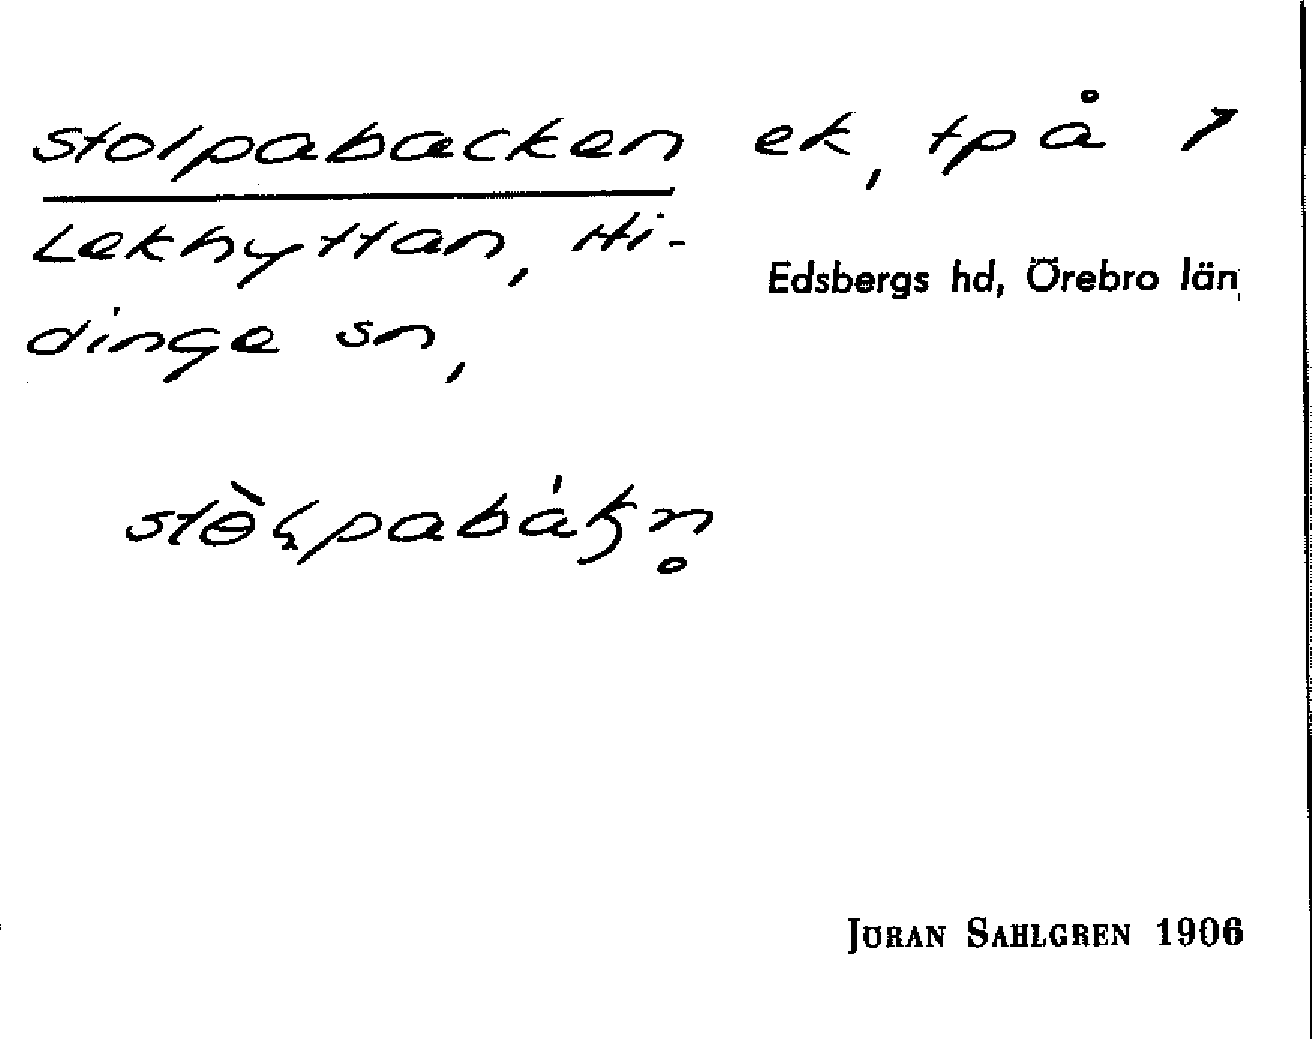 stolpabacken ek, tp å ↗
Lekhyttan, Hi-
dinge sn,
Edsbergs hd, Örebro län
JÖRAN SAHLGREN 1906